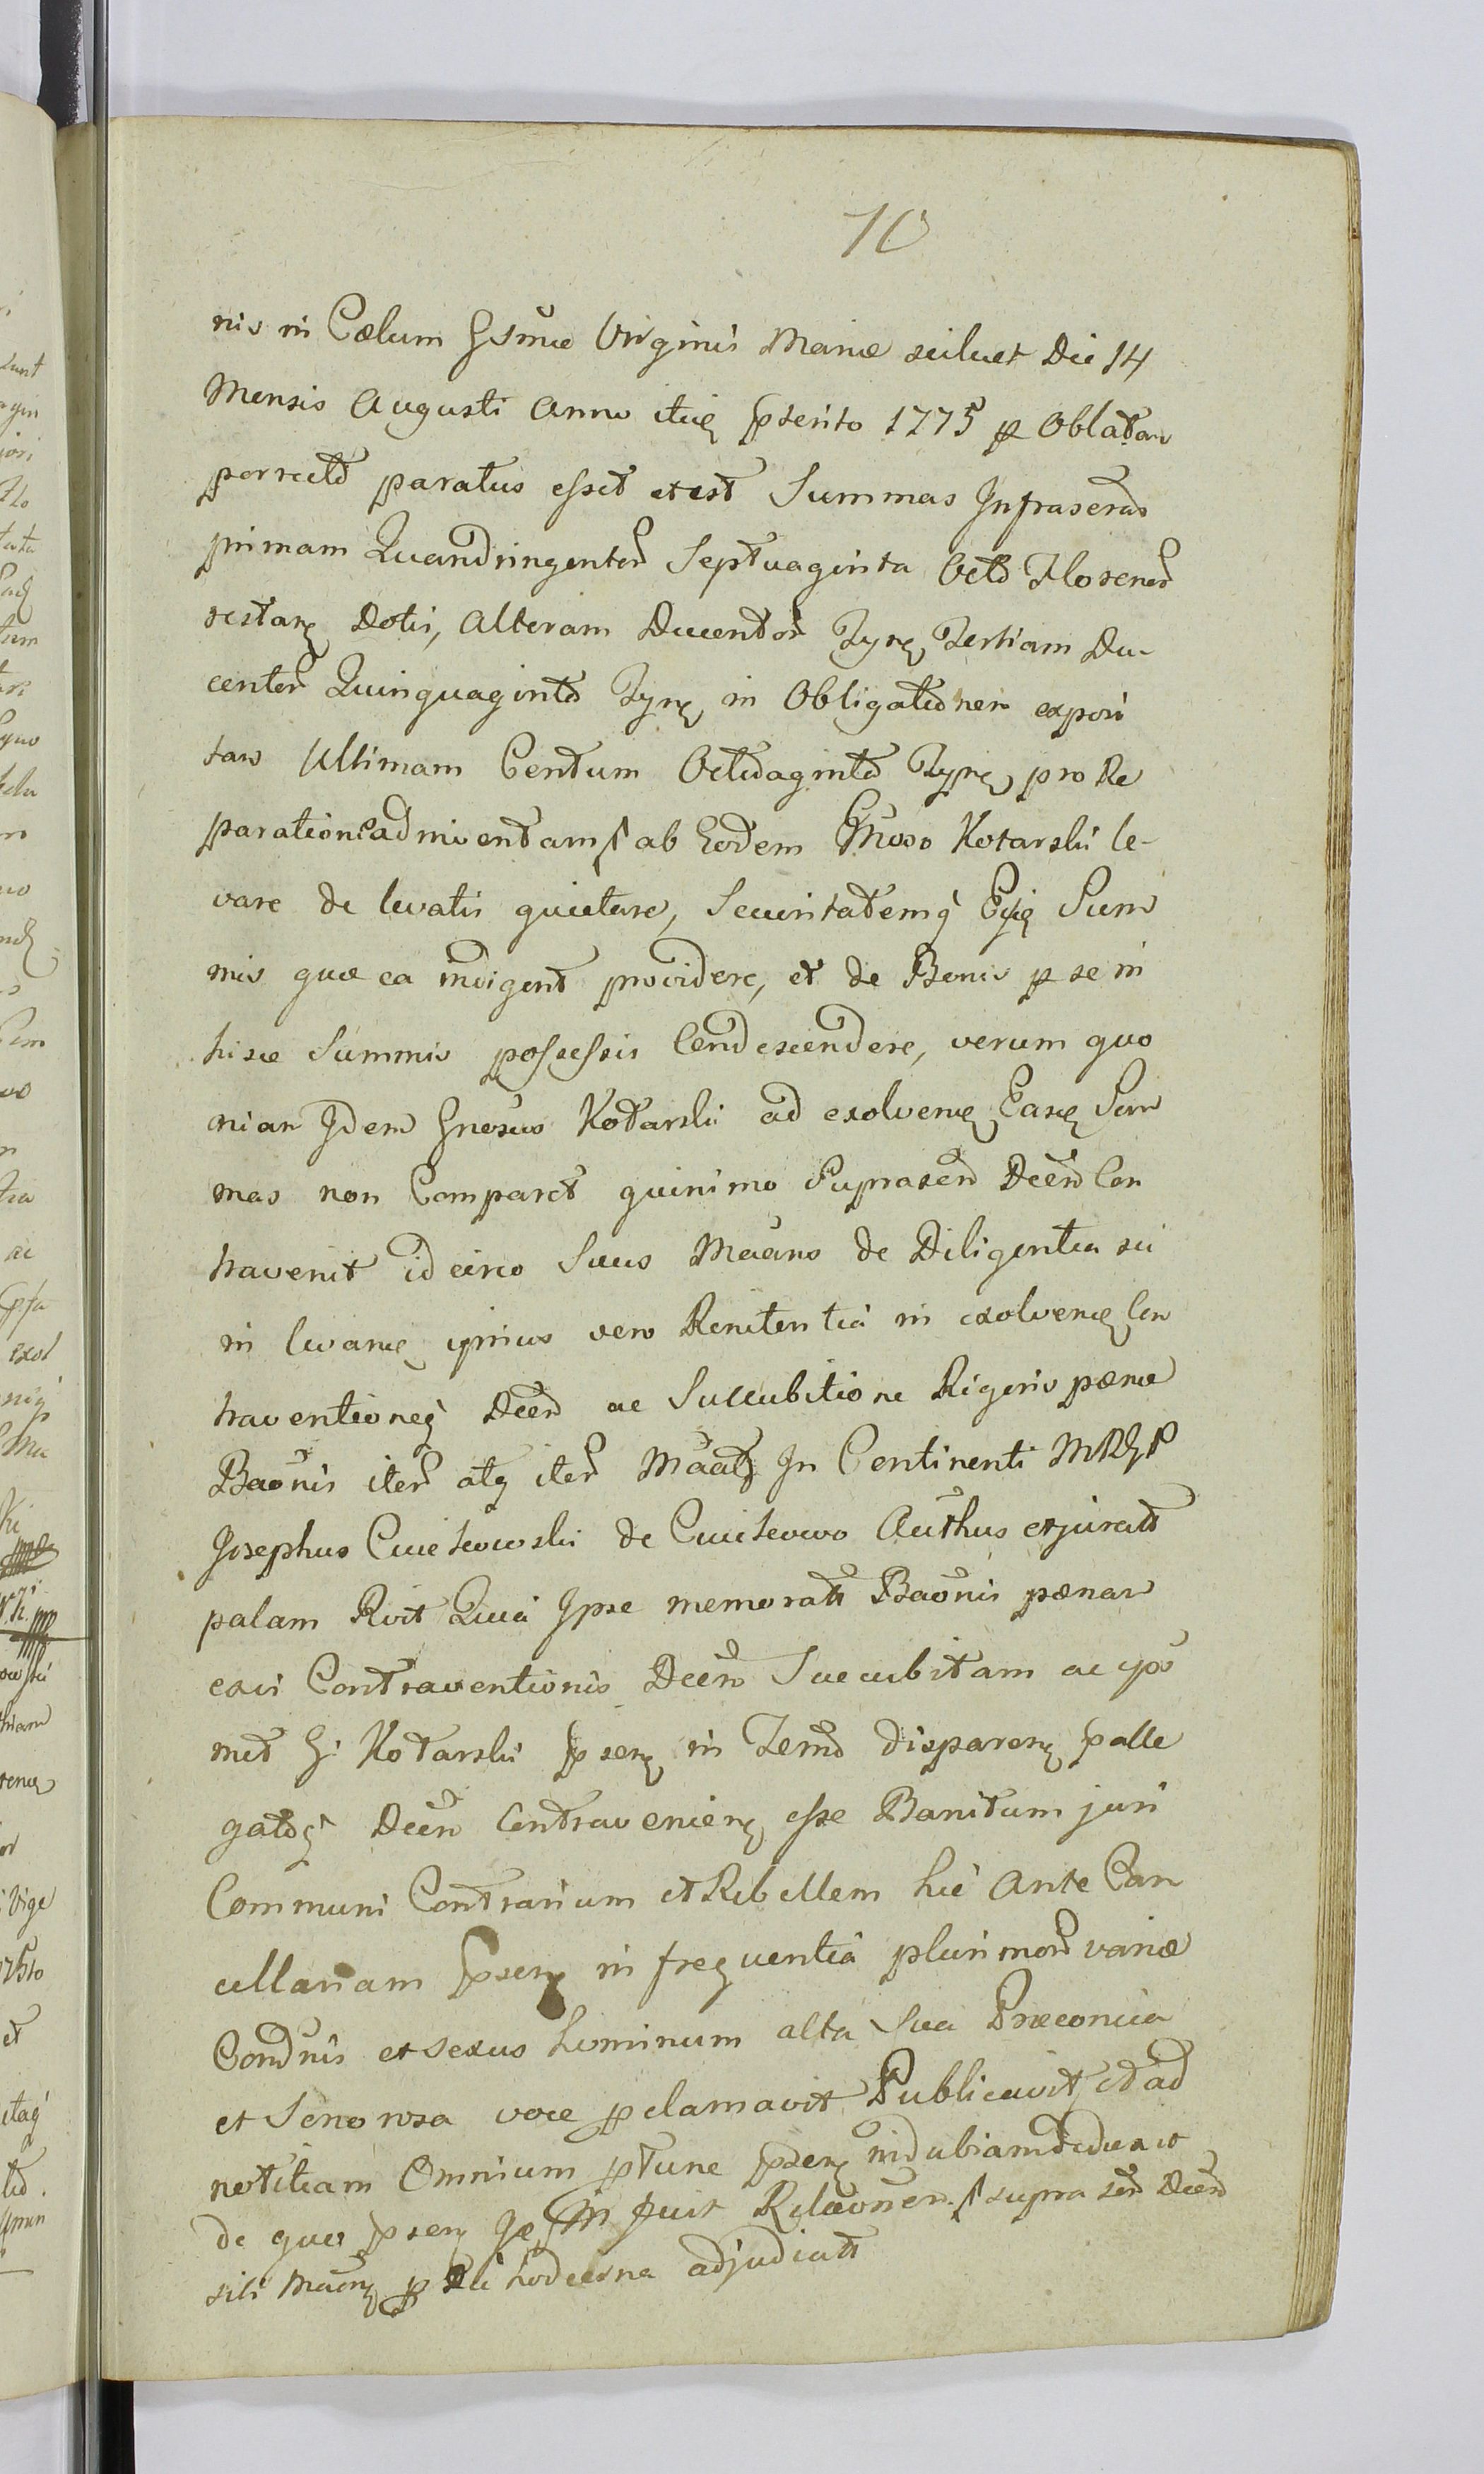 10
nis in Cœlum Gsmæ Virginis Mariæ scilicet Die 14
Mensis Augusti Anno itiq pterito 1775 p Oblatam
porrectã paratus esset et est Summas Infrascrñs
primam Quandringentorũ Septuaginta Octo Florenorũ
restanq Dotis, Alteram Ducentorũ Tynq Tertiam Du-
centorũ Quinquaginta Tynq in Obligationem exposi
tam Ultimam Centum Octuaginta Tynq pro Re
paratione adinventam ab Eodem Gñoso Kotarski le-
vare de levatis quietare, Securitatemq Ejq Sum
mis quæ ea indigent providere, et de Bonis p se in
hisce Summis possessis Condescendere, verum quo
niam Idem Gnosus Kotarski ad exolvenq Easq Sum
mas non Comparet quinimo Suprascrñ Decrñ Con
travenit idcirco Suus Mãans de Diligentia sui
in levanq ipsius vero Renitentiã in exolvenq Con
traventioneq Decrñ ac Succubitione Rigoris pœnæ
Baõnis iterũ atq iterũ Mãatq In Continenti MRGP
Josephus Cwietkowski de Autħus et jurats
palam Rvit Quia Ipse memorats Baõnis pœnam
ex vi Contraventionis Decrñ Succubitam ac ipso
met G: Kotarski psenq in Termõ disparenq palle
gatoq Decrñ Contravenienq esse Banitum juri
Communi Contrarium et Rebellem hic Ante Can
cellariam psenq in frequentiã plurimorũ variæ
Condnis et sexus hominum alta Sua Præconica
et Sonorosa voce pclamavit Publicavit et ad
notitiam Omnium ptunc psenq indubiam deduxit
de quo psenq fecit Relaõnem supra scrñ Decrñ
sibi p hodierna adjudicats